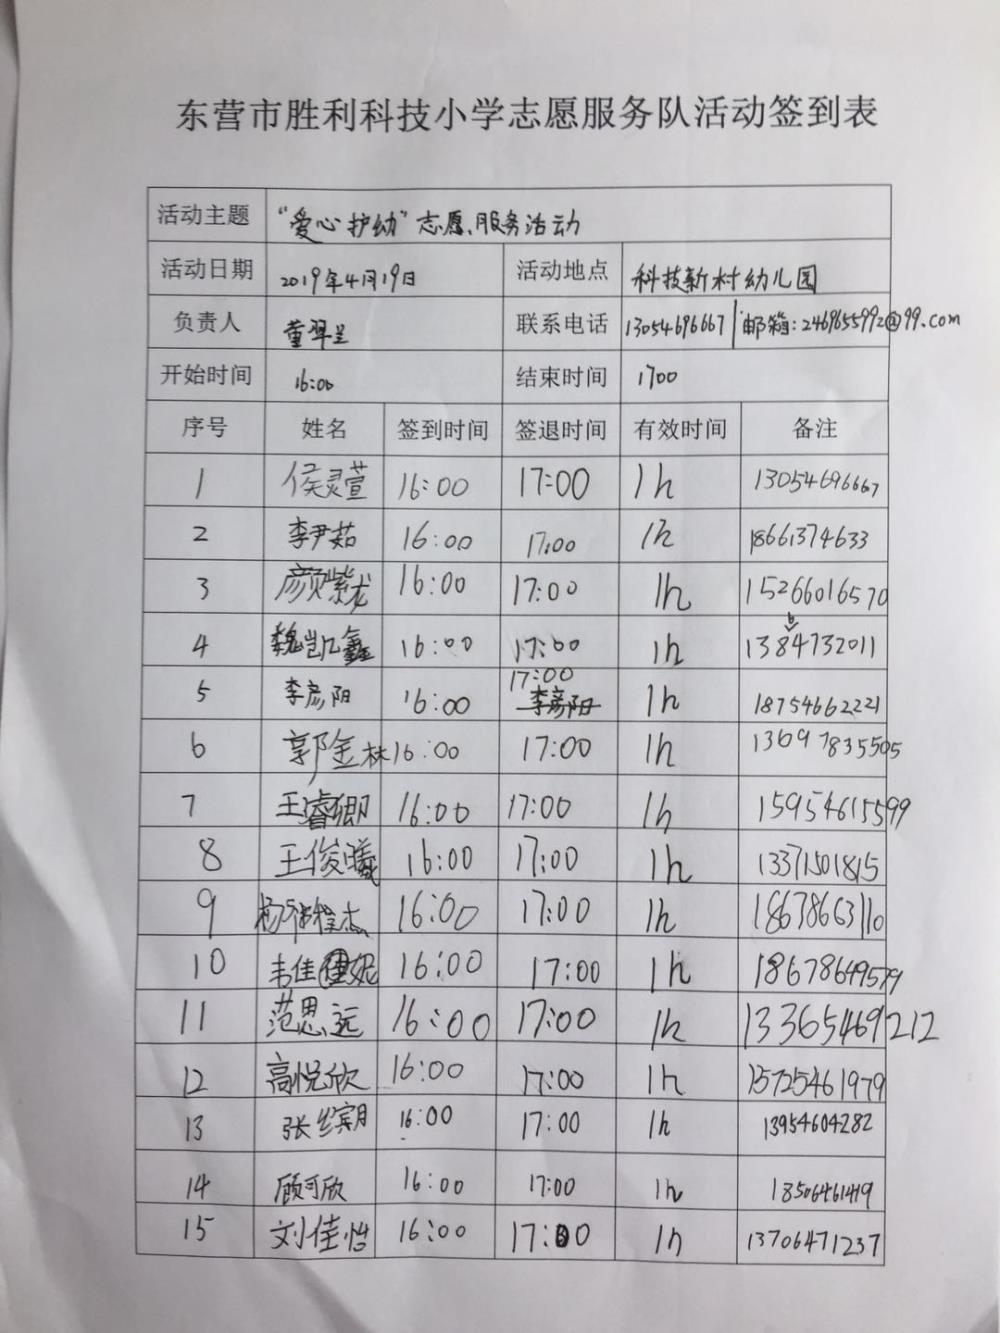 东营市胜利科技小学志愿服务队活动签到表
活动主题 “爱心护幼”志愿服务活动
活动日期 2019年4月19日 活动地点 科技新村幼儿园
负责人 董翠呈 联系电话 13054696667 邮箱:246965599z@99.com
开始时间 16:00 结束时间 1700
序号 姓名 签到时间 签退时间 有效时间 备注
1 侯灵萱 16:00 17:00 1h 13054696667
2 李尹茹 16:00 17:00 1h 18661374633
3 颜紫龙 16:00 17:00 1h 15266016570
4 魏凯鑫 16:00 17:00 1h
5 李彦阳 16:00 17:00 1h 18754662221
6 郭金林 16:00 17:00 1h 13697835505
7 王睿卿 16:00 17:00 1h 15954615599
8 王俊曦 16:00 17:00 1h 13371501815
9 16:00 17:00 1h 18678663110
10 16:00 17:00 1h 18678649579
11 范思远 16:00 17:00 1h 13365469212
12 高悦欣 16:00 17:00 1h 15725461979
13 张缤月 16:00 17:00 1h 13954604282
14 顾可欣 16:00 17:00 1h 18506461419
15 刘佳怡 16:00 17:00 1h 13706471237